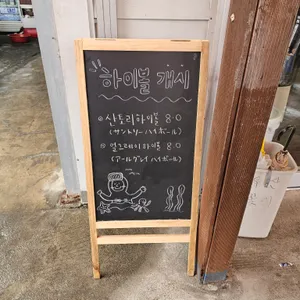 하이볼 개시
산토리하이볼 8.0
(サントリーハイボール)
얼그레이하이볼 8.0
(アールグレイハイボール)